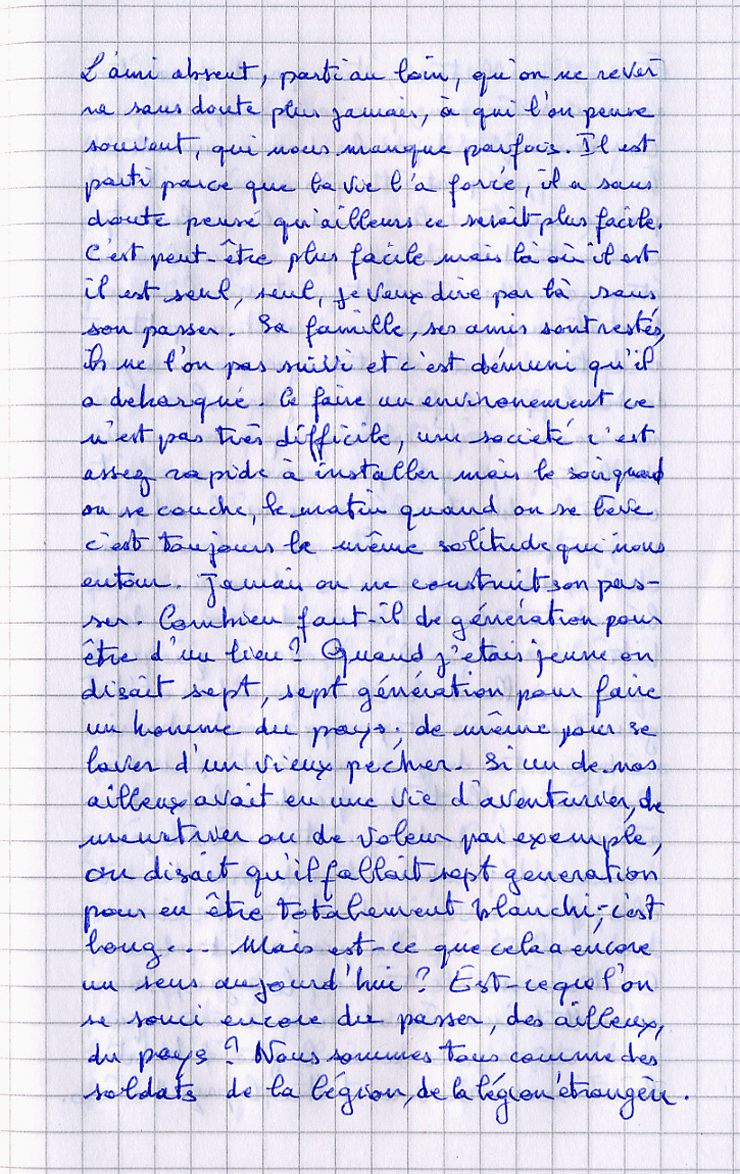 L'ami absent, parti au loin, qu'on ne rever
ra sans doute plus jamais, à qui l'on pense
souvent, qui nous manque parfois. Il est
parti parce que la vie l'a forcé, il a sans
doute pensé qu'ailleurs ce serait plus facile.
C'est peut-être plus facile mais là où il est
il est seul, seul, je veux dire par là sans
son passer. Sa famille, ses amis sont restés,
ils ne l'on pas suivi et c'est démuni qu'il
a debarqué. Ce faire un environement ce
n'est pas très difficile, une societé c'est
assez rapide à installer mais le soir quand
on se couche, le matin quand on se lève
c'est toujours la même solitude qui nous
entour. Jamais on ne construit son pas-
ser. Combien faut-il de génération pour
être d'un lieu? Quand j'étais jeune on
disait sept, sept génération pour faire
un homme du pays; de même pour se
laver d'un vieux pécher. Si un de nos
ailleux avait eu une vie d'aventurier, de
meurtrier ou de voleur par exemple,
on disait qu'il fallait sept generation
pour en être totalement blanchi; c'est
long... Mais est-ce que cela a encore
un sens aujourd'hui? Est-ce que l'on
se souci encore du passer, des ailleux,
du pays? Nous sommes tous comme des
soldats de la légion, de la légion étrangère.